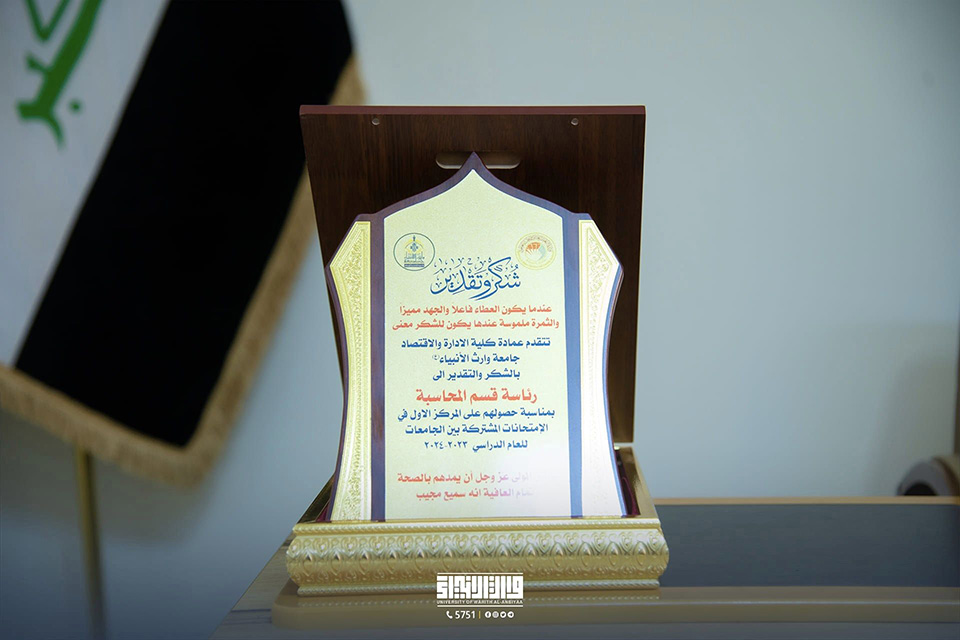 شكر وتقدير
عندما يكون العطاء فاعلاً والجهد مميزا
والثمرة ملموسة عندها يكون للشكر معنى
تتقدم عمادة كلية الادارة والاقتصاد
جامعة وارث الأنبياء (ع)
بالشكر والتقدير الى
رئاسة قسم المحاسبة
بمناسبة حصولهم على المركز الاول في
الإمتحانات المشتركة بين الجامعات
للعام الدراسي ٢٠٢٣-٢٠٢٤
عز وجل أن يمدهم بالصحة
العافية انه سميع مجيب
UNIVERSITY OF WARITH AL-ANBIYAA
5751